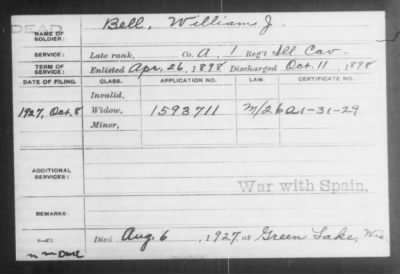 DEAD
NAME OF SOLDIER: Bell, William J.
SERVICE: Late rank, Co. A, 1 Reg't Ill Cav.
TERM OF SERVICE: Enlisted Apr. 26, 1898 Discharged Oct. 11, 1898
DATE OF FILING. CLASS. APPLICATION NO. LAW. CERTIFICATE NO.
Invalid,
1927, Oct. 8 Widow, 1593711 M/26 A1-31-29
Minor,
ADDITIONAL SERVICES:
War with Spain.
REMARKS:
Died Aug. 6, 1927, at Green Lake, Wis.